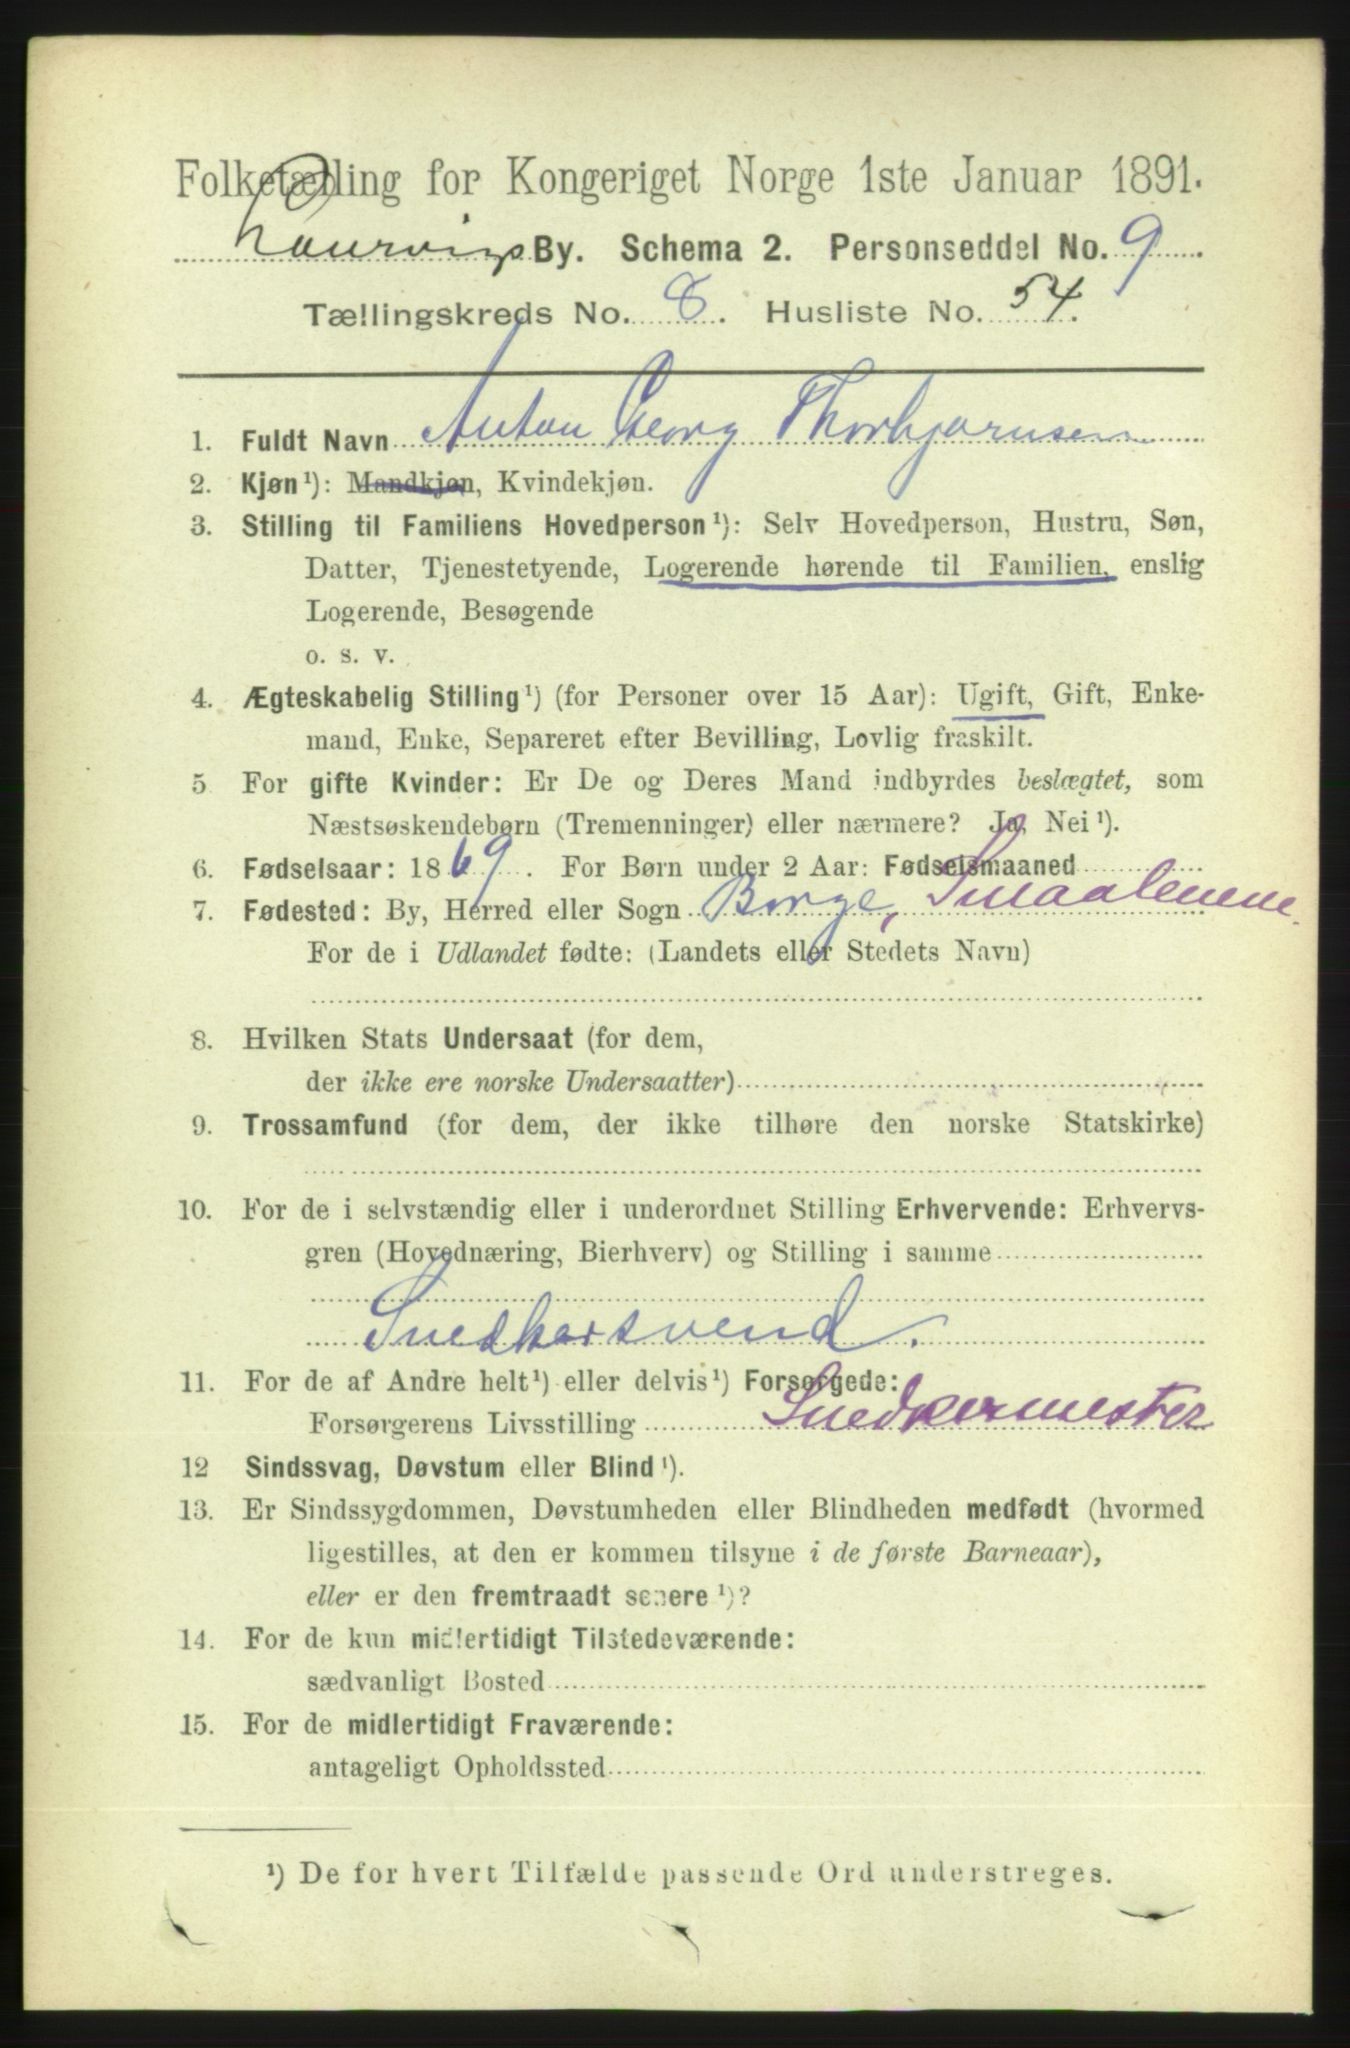 Folketælling for Kongeriget Norge 1ste Januar 1891.
Laurvigs By. Schema 2. Personseddel No. 9
Tællingskreds No. 8. Husliste No. 54.
1. Fuldt Navn Anton Georg Thorbjørnsen
2. Kjøn¹): Mandkjøn, Kvindekjøn.
3. Stilling til Familiens Hovedperson¹): Selv Hovedperson, Hustru, Søn,
Datter, Tjenestetyende, Logerende hørende til Familien, enslig
Logerende, Besøgende
o. s. v.
4. Ægteskabelig Stilling¹) (for Personer over 15 Aar): Ugift, Gift, Enke-
mand, Enke, Separeret efter Bevilling, Lovlig fraskilt.
5 For gifte Kvinder: Er De og Deres Mand indbyrdes beslægtet, som
Næstsøskendebørn (Tremenninger) eller nærmere? Ja, Nei¹).
6. Fødselsaar: 1869. For Børn under 2 Aar: Fødselsmaaned
7. Fødested: By, Herred eller Sogn Borge, Smaalenene.
For de i Udlandet fødte: (Landets eller Stedets Navn)
8. Hvilken Stats Undersaat (for dem,
der ikke ere norske Undersaatter)
9. Trossamfund (for dem, der ikke tilhøre den norske Statskirke)
10. For de i selvstændig eller i underordnet Stilling Erhvervende: Erhvervs-
gren (Hovednæring, Bierhverv) og Stilling i samme
Snedkersvend.
11. For de af Andre helt¹) eller delvis¹) Forsørgede:
Forsørgerens Livsstilling Snedkermester
12 Sindssvag, Døvstum eller Blind¹).
13. Er Sindssygdommen, Døvstumheden eller Blindheden medfødt (hvormed
ligestilles, at den er kommen tilsyne i de første Barneaar),
eller er den fremtraadt senere¹)?
14. For de kun midlertidigt Tilstedeværende:
sædvanligt Bosted
15. For de midlertidigt Fraværende:
antageligt Opholdssted
¹) De for hvert Tilfælde passende Ord understreges.